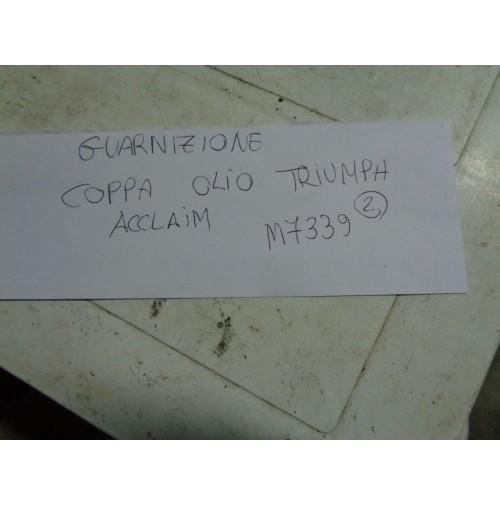 GUARNIZIONE
COPPA OLIO TRIUMPH
ACCLAIM M7339 2